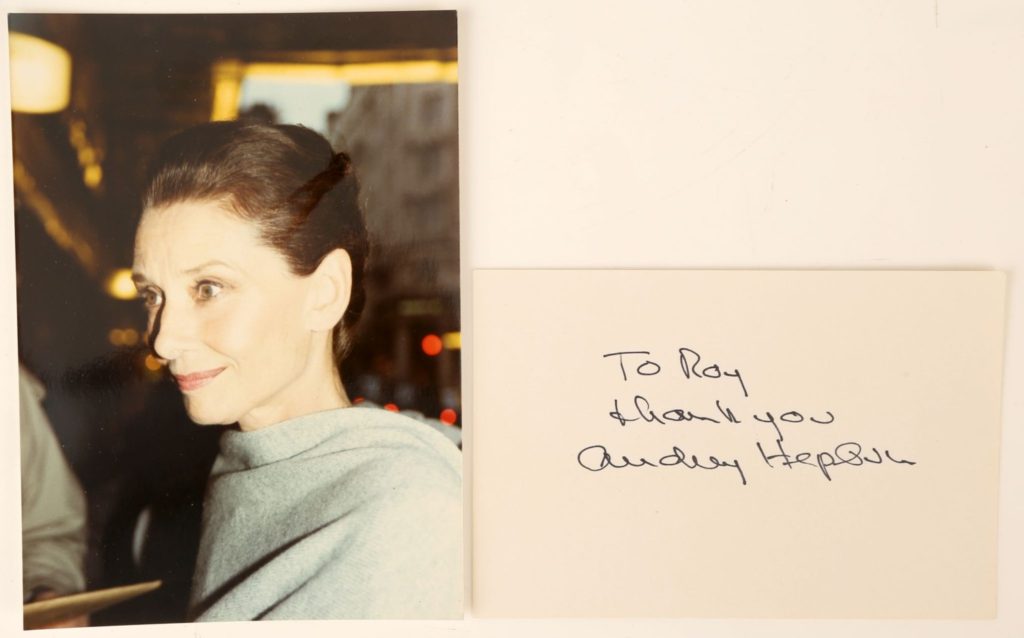 To Roy
thank you
Audrey Hepburn